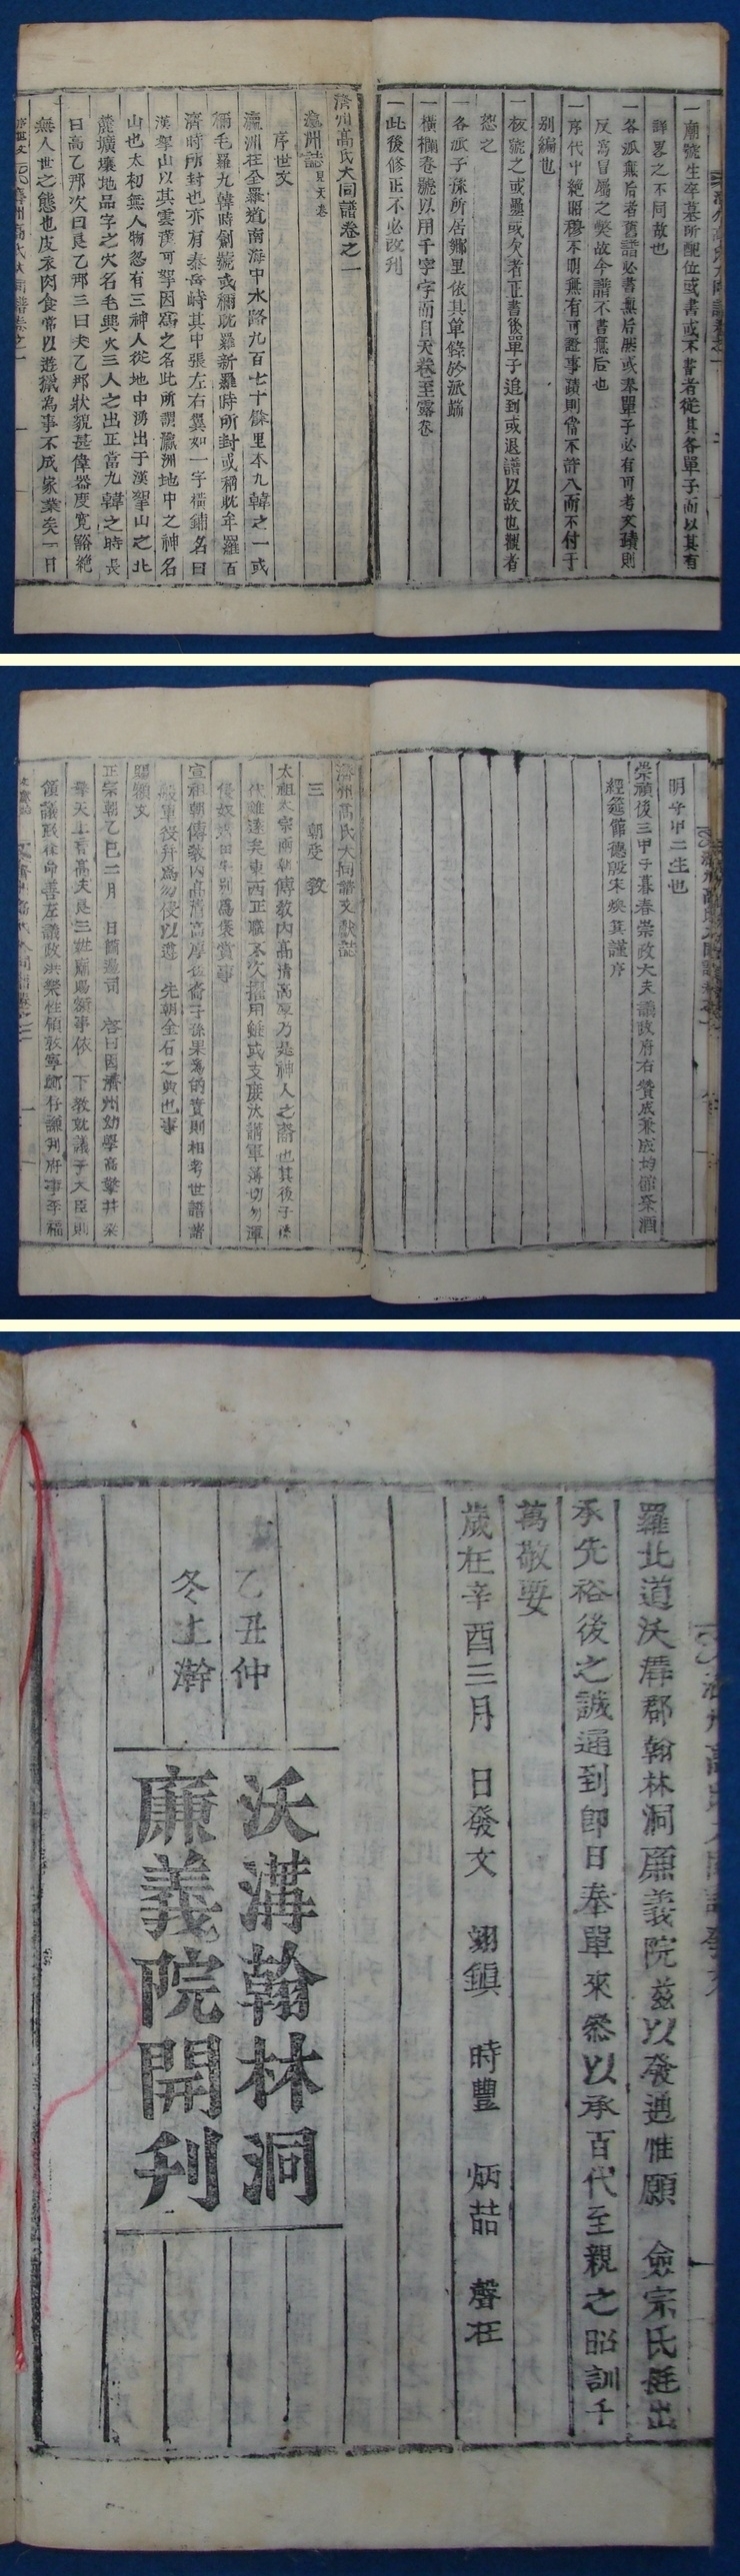 一廟號生卒墓所配位或書或不書者從其各單子而以其有
詳畧之不同故也
一各派無后者舊譜必書無后然或奉單子必有可考文蹟則
反爲冒屬之弊故今譜不書無后也
一序代中絶昭穆不明無有可證事蹟則當不許入而不付于
別編也
一核號之或疊或欠者正書後單子追到或退譜以故也觀者
恕之
一各派子孫所居鄉里依其單錄於派端
一橫欄卷號以用千字字而自天卷至露卷
一此後修正不必改刊
濟州髙氏大同譜卷之一
瀛州誌見天卷
序世文
瀛洲在全羅道南海中水路九百七十餘里本九韓之一或
稱毛羅九韓時創號或稱耽羅新羅時所封或稱耽牟羅百
濟時所封也亦有泰岳峙其中張左右翼如一字橫鋪名曰
漢拏山以其雲漢可拏因爲之名此所謂瀛洲地中之神名
山也太初無人物忽有三神人從地中湧出于漢拏山之北
麓壙壤地品字之穴名毛興穴三人之出正當九韓之時長
曰高乙那次曰良乙那三曰夫乙那狀貌甚偉器度寬豁絶
無人世之態也皮衣肉食常以遊獵為事不成家業矣一日
明亨甲二生也
崇禎後三甲子暮春崇政大夫議政府右贊成兼成均館祭酒
經筵官德殷宋煥箕謹序
濟州髙氏大同譜文獻誌
三 朝受 敎
太祖太宗兩朝傳教內高清高厚乃是神人之裔也其後子孫
代雖遠矣東西正職不次擢用雖或支庶汰講軍簿切勿渾
侵奴
宣祖朝傳教內高清高厚
般軍役幷爲勿侵以遵 先朝金石之典也事
賜額文
正宗朝乙巳二月 日備邊司 啓曰因濟州幼學高
領議政徐命善左議政洪樂性領敦寧鄭存謙判府事李福
羅北道沃溝郡翰林洞廉義院茲以發通惟願 僉宗氏挺出
承先裕後之誠通到卽日奉單來叅以承百代至親之昭訓千
萬敬要
歲在辛酉三月 日發文 翊鎭 時豐 炳喆 聲在
乙丑仲
冬上澣
沃溝翰林洞
廉義院開刊